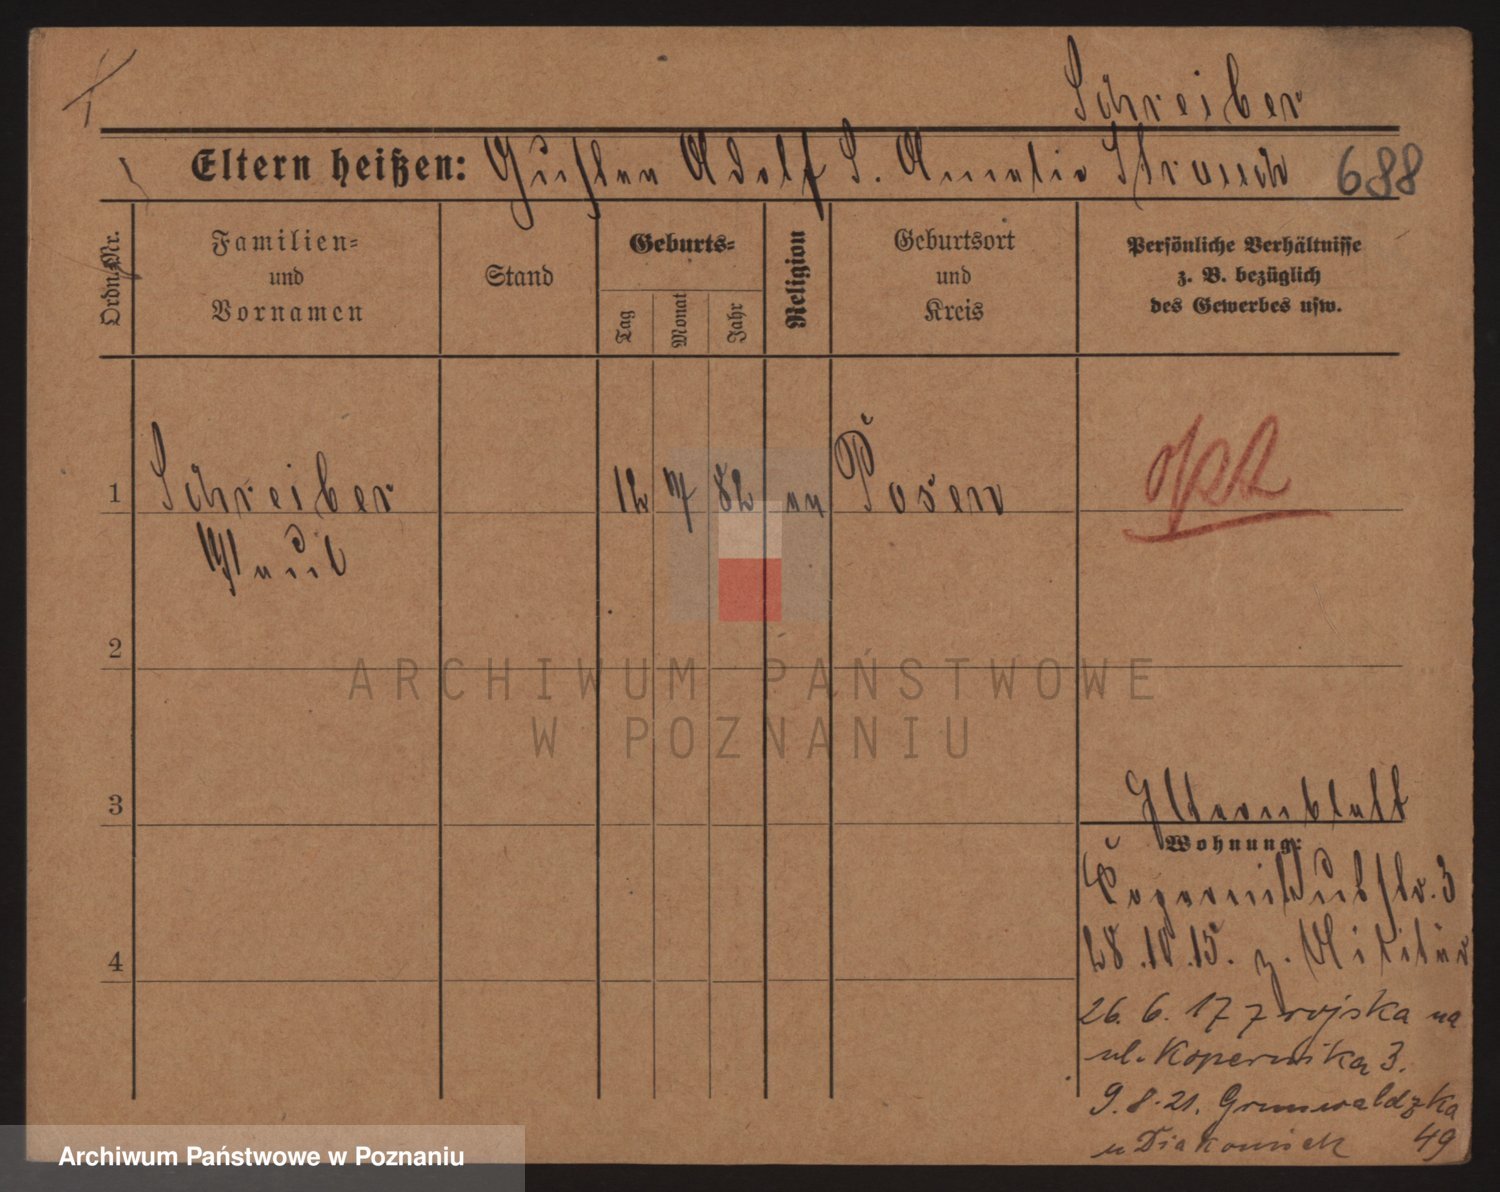 Schreiber
Eltern heißen: Gustav Adolf S. Amalie Strauch 688
Ordn.Nr.
Familien=
und
Vornamen
Stand
Geburts=
Tag
Monat
Jahr
Religion
Geburtsort
und
Kreis
Persönliche Verhältnisse
z. B. bezüglich
des Gewerbes usw.
1 Schreiber 12 7 82 ev Posen
Paul
2
3
4
Elternblatt
Wohnung:
Kopernikusstr. 3
28.10.15. z. Militär
26. 6. 17 z wojska na
ul. Kopernika 3.
9. 8. 21. Grunwaldzka
u Diakonisek 49
ARCHIWUM PAŃSTWOWE
W POZNANIU
Archiwum Państwowe w Poznaniu